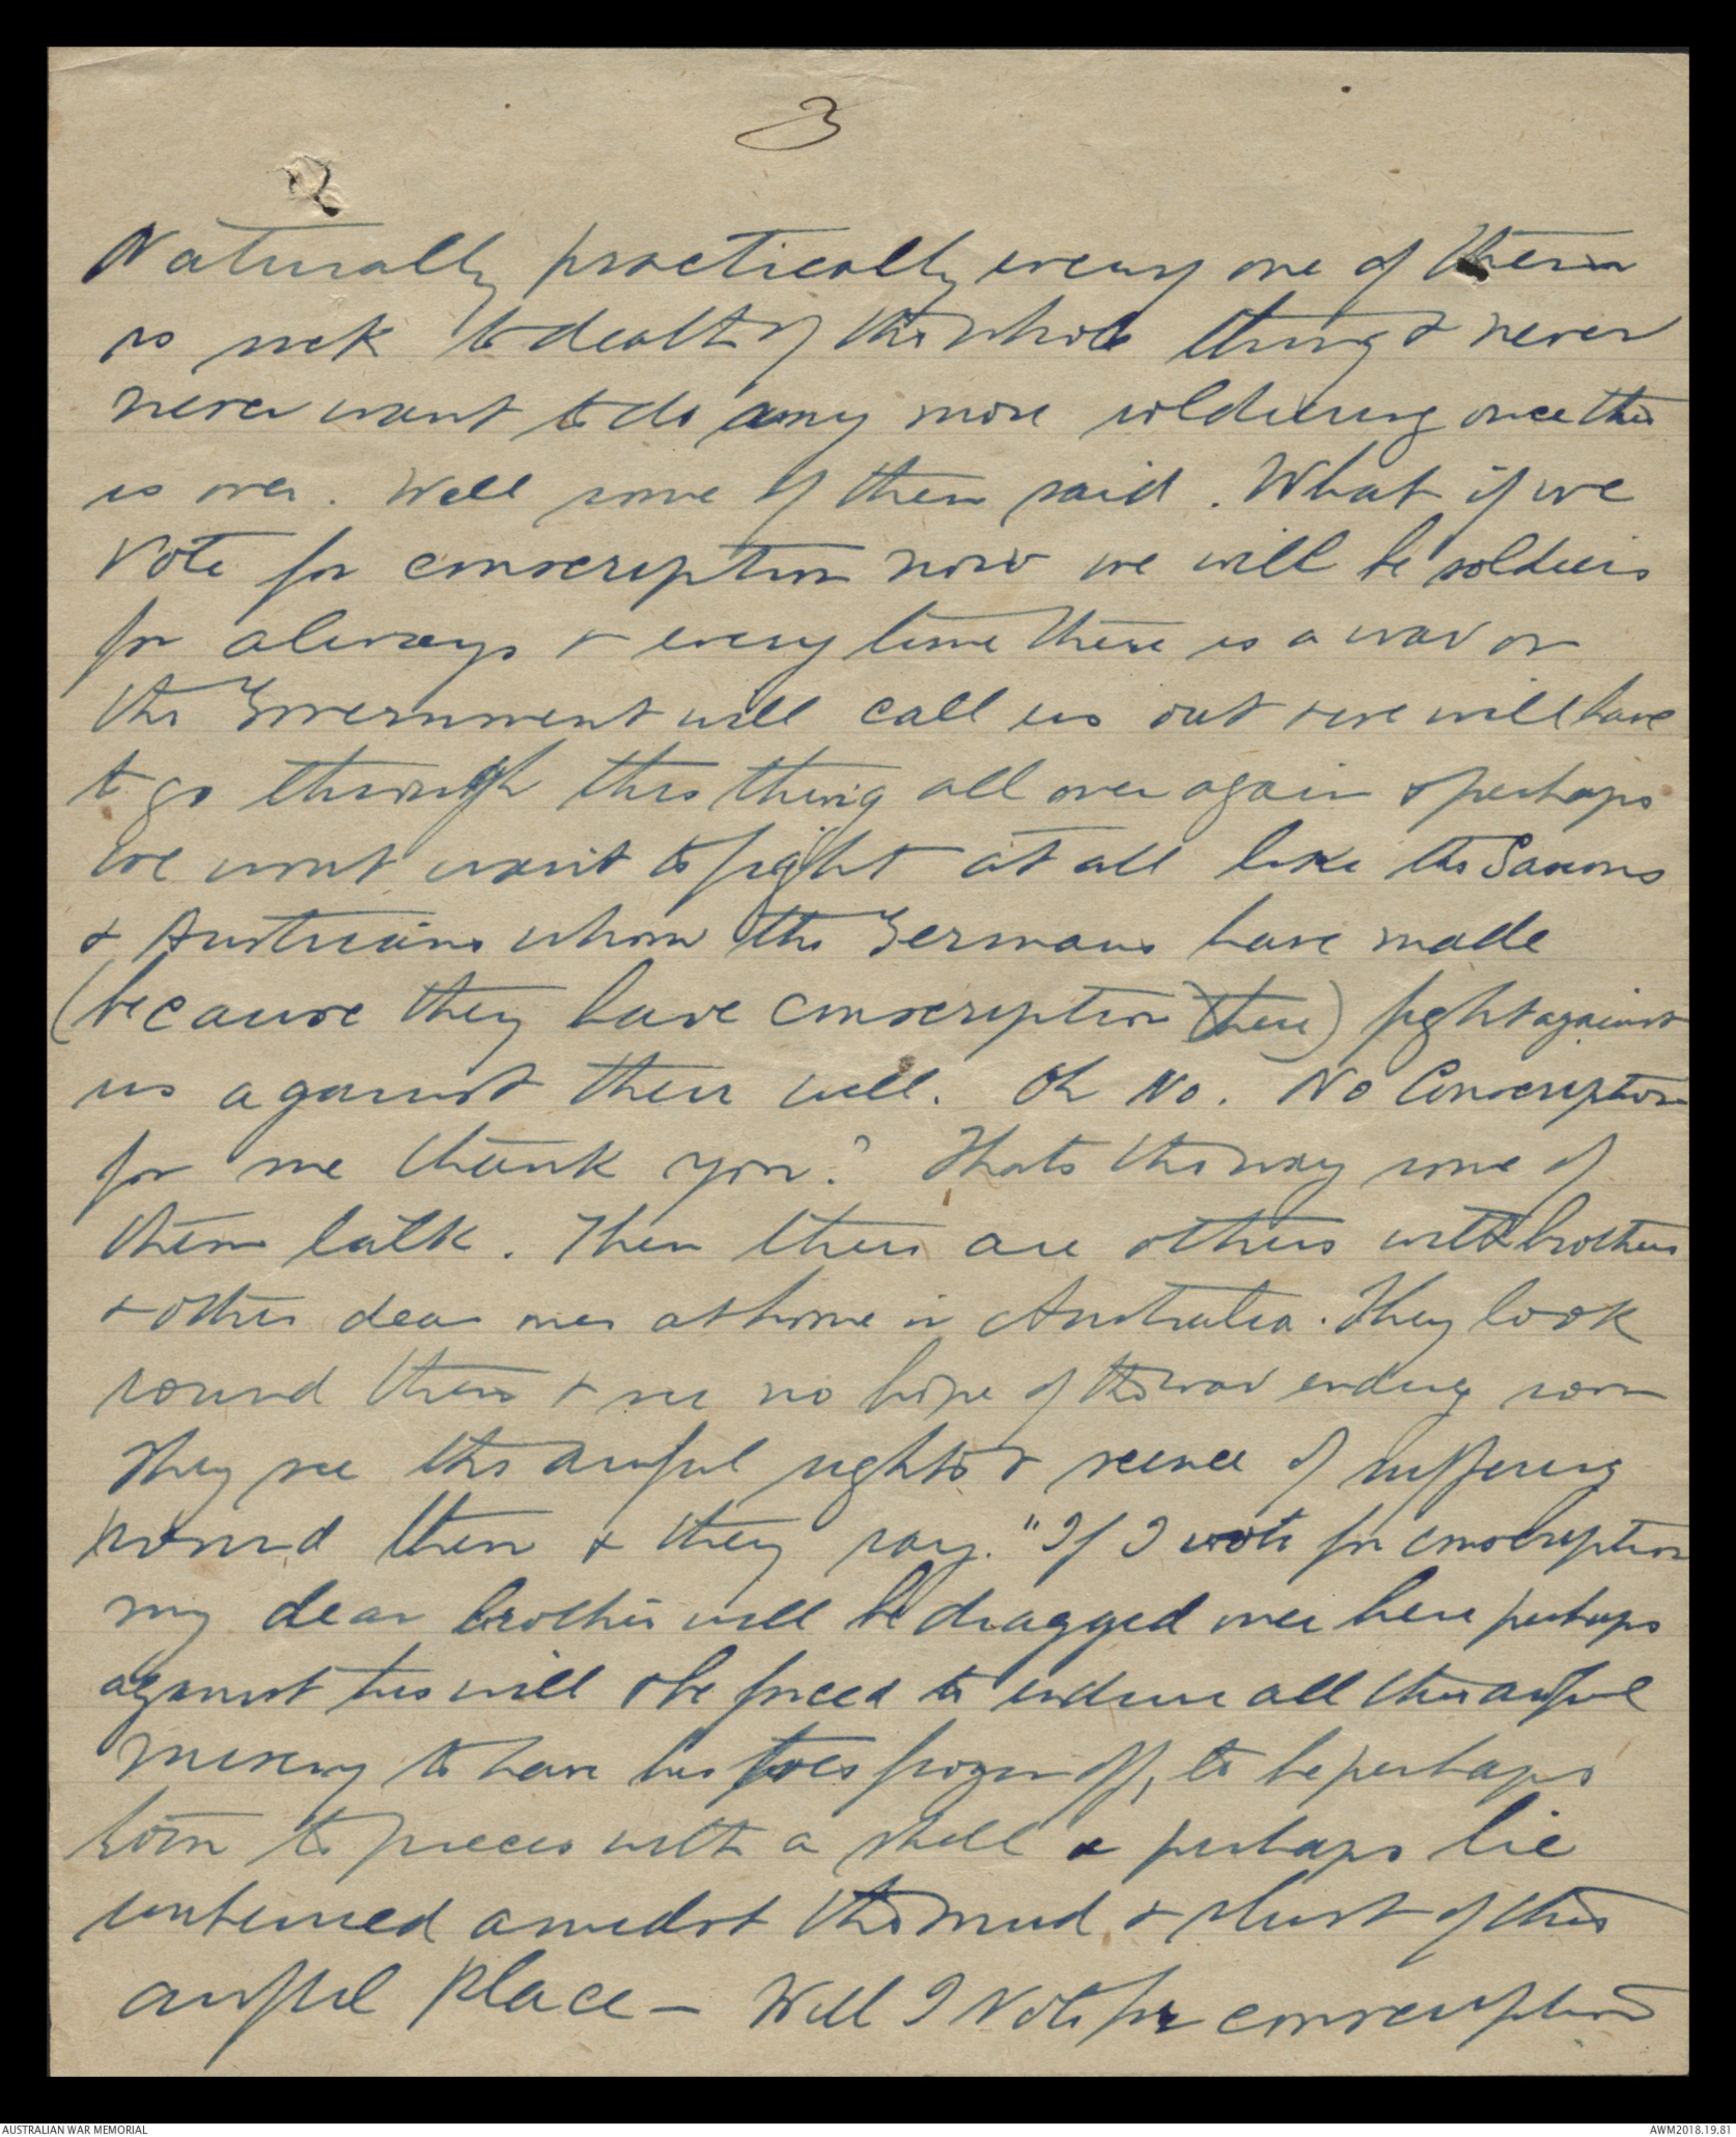 3
Naturally practically every one of them
is sick to death of the whole thing & never
never want to do any more soldiering once this
is over. Well some of them said. What if we
Vote for conscription now we will be soldiers
for always & every time there is a war on
the Government will call us out & we will have
to go through this thing all over again & perhaps
we wont want to fight at all like the Saxons
& Austrians whom the Germans have made
(because they have conscription there) fight against
us against their will. Oh No. No Conscription
for me thank you." Thats the way some of
them talk. Then there are others with brothers
& other dear ones at home in Australia. They look
round them & see no hope of the war ending soon
They see the awful sights & scenes of suffering
round them & they say. "If I vote for conscription
my dear brother will be dragged over here perhaps
against his will & be forced to endure all this awful
misery to have his toes frozen off, to be perhaps
torn to pieces with a shell & perhaps lie
unburied amidst the mud & slush of this
awful place – Will I Vote for conscription
AUSTRALIAN WAR MEMORIAL
AWM2018.19.81